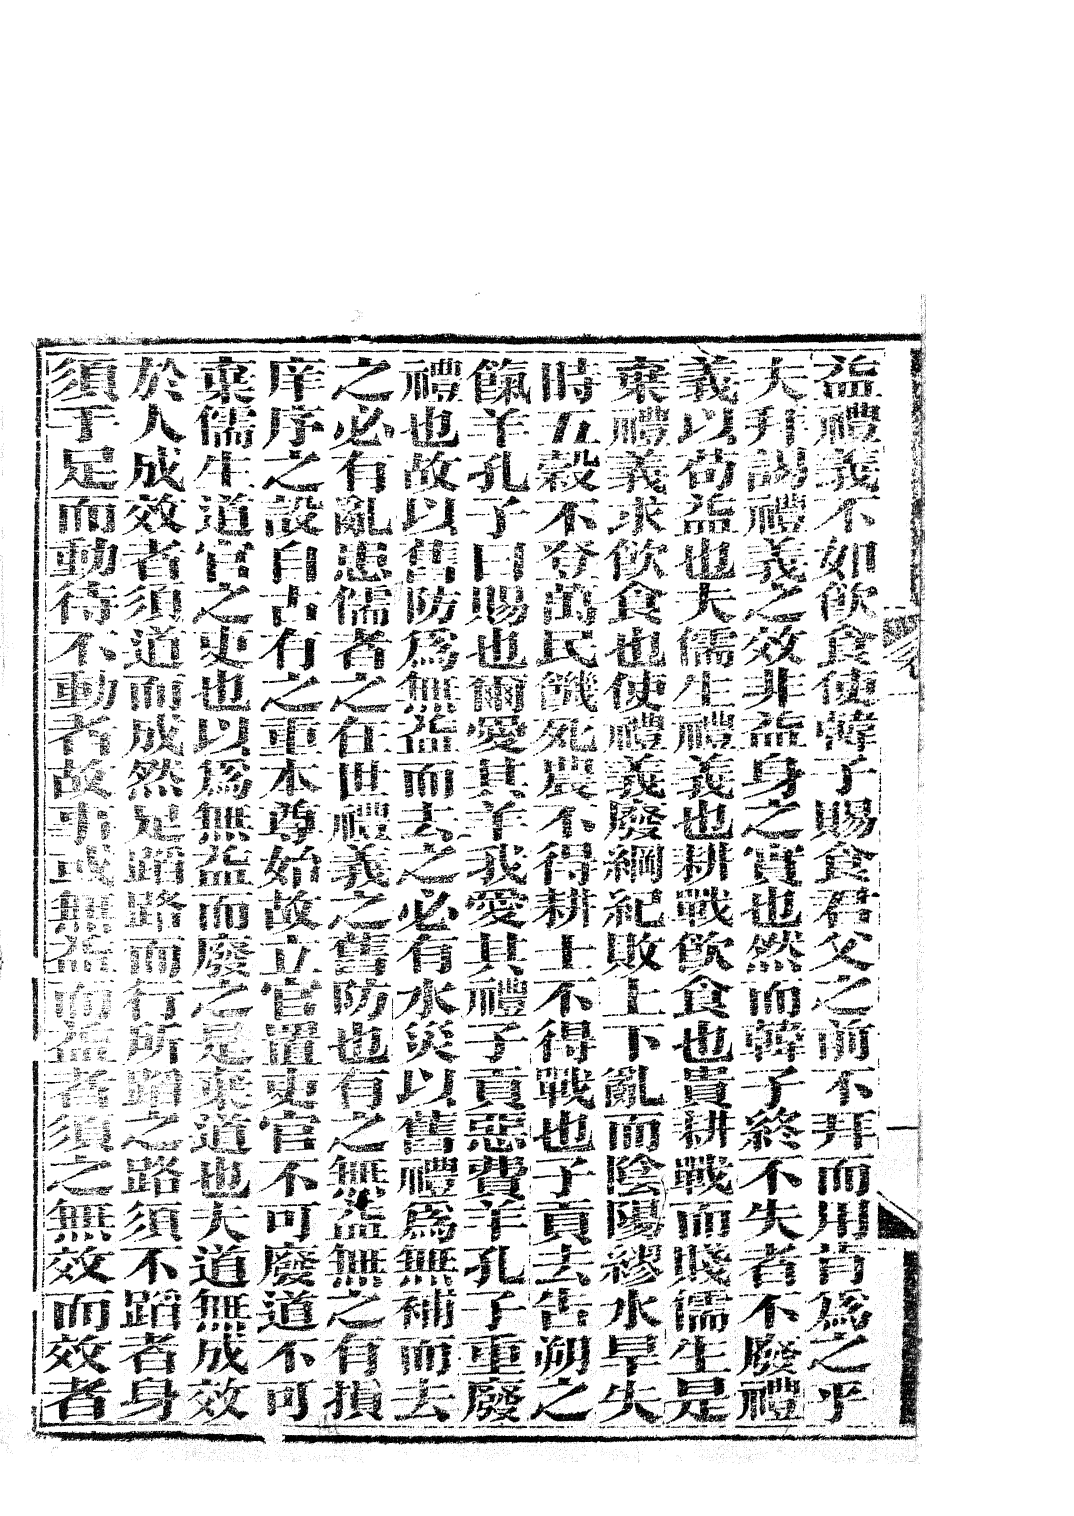 益禮義不如飲食使韓子賜食君父之前不拜而用肯爲之乎
夫拜謁禮義之效非益身之實也然而韓子終不失者不廢禮
義以苟益也夫儒生禮義也耕戰飲食也貴耕戰而賤儒生是
棄禮義求飲食也使禮義廢綱紀敗上下亂而陰陽繆水旱失
時五穀不登萬民饑死農不得耕士不得戰也子貢去告朔之
餼羊孔子曰賜也爾愛其羊我愛其禮子貢惡費羊孔子重廢
禮也故以舊防爲無益而去之必有水災以舊禮爲無補而去
之必有亂患儒者之在世禮義之舊防也有之無益無之有損
庠序之設自古有之重本尊始故立官置吏官不可廢道不可
棄儒生道官之吏也以爲無益而廢之是棄道也夫道無成效
於人成效者須道而成然足蹈路而行所蹈之路須不蹈者身
須手足而動待不動者故事或無益而益者須之無效而效者